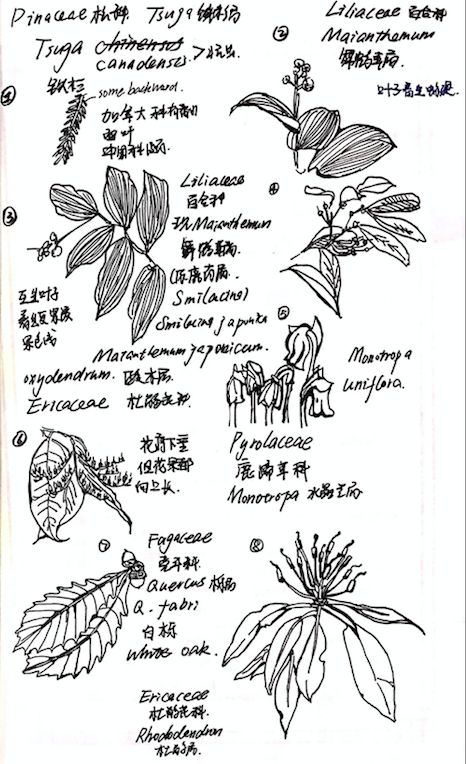 Pinaceae 松科. Tsuga 铁杉属
Tsuga chinensis
canadensis.
①
铁杉
some backward.
加拿大
面叶
②
Liliaceae 百合科
Maianthemum
舞鹤草属
③
Liliaceae
百合科
Maianthemum
舞鹤草属
(原鹿药属
Smilacina)
Smilacina japonica
Maianthemum japonicum.
互生叶子
④
oxydendrum. 酸木属
Ericaceae 杜鹃花科
⑤
Monotropa
uniflora.
Pyrolaceae
鹿蹄草科
Monotropa 水晶兰属
⑥
花序下垂
但花果都
向上长.
⑦
Fagaceae
壳斗科.
Quercus 栎属
Q. fabri
白栎
White oak.
⑧
Ericaceae
杜鹃花科.
Rhododendron
杜鹃属.